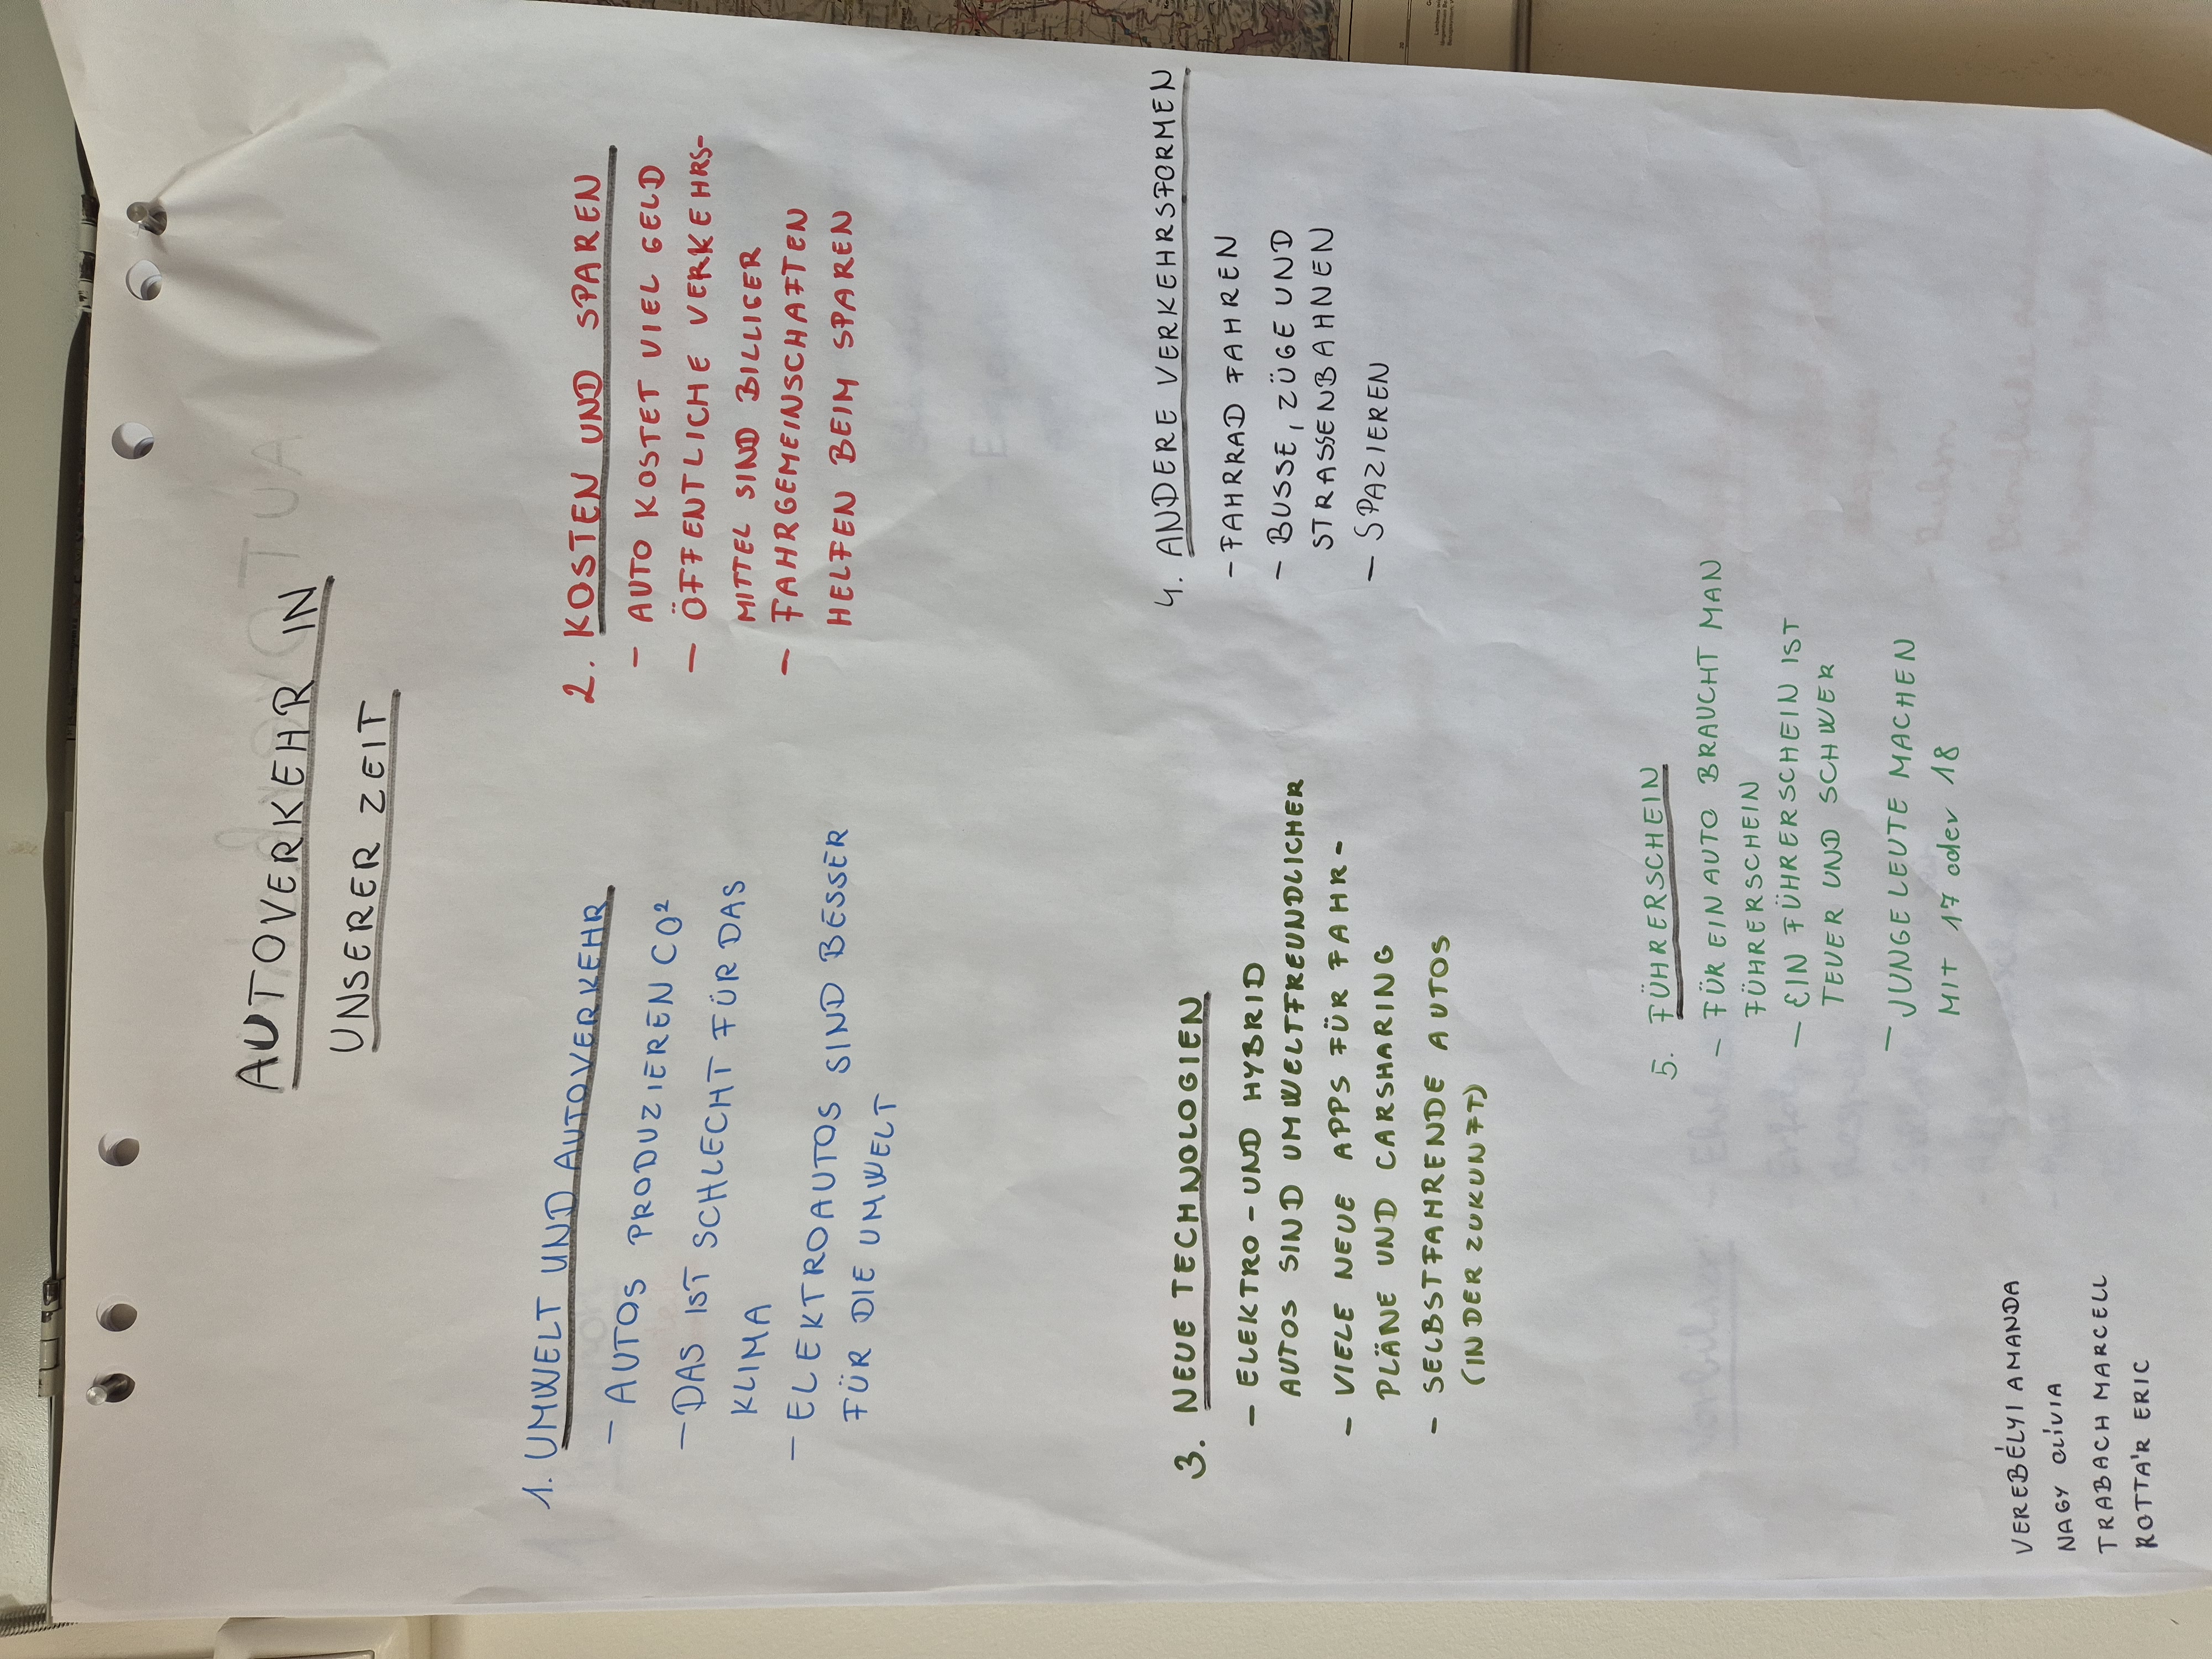 AUTOVERKEHR IN
UNSERER ZEIT
1. UMWELT UND AUTOVERKEHR
- AUTOS PRODUZIEREN CO²
- DAS IST SCHLECHT FÜR DAS
KLIMA
- ELEKTROAUTOS SIND BESSER
FÜR DIE UMWELT
2. KOSTEN UND SPAREN
- AUTO KOSTET VIEL GELD
- ÖFFENTLICHE VERKEHRS-
MITTEL SIND BILLIGER
- FAHRGEMEINSCHAFTEN
HELFEN BEIM SPAREN
3. NEUE TECHNOLOGIEN
- ELEKTRO-UND HYBRID
AUTOS SIND UMWELTFREUNDLICHER
- VIELE NEUE APPS FÜR FAHR-
PLÄNE UND CARSHARING
- SELBSTFAHRENDE AUTOS
(IN DER ZUKUNFT)
4. ANDERE VERKEHRSFORMEN
- FAHRRAD FAHREN
- BUSSE, ZÜGE UND
STRASSENBAHNEN
- SPAZIEREN
5. FÜHRERSCHEIN
- FÜR EIN AUTO BRAUCHT MAN
FÜHRERSCHEIN
- EIN FÜHRERSCHEIN IST
TEUER UND SCHWER
- JUNGE LEUTE MACHEN
MIT 17 oder 18
VEREBÉLYI AMANDA
NAGY OLÍVIA
TRABACH MARCELL
ROTTÁR ERIC